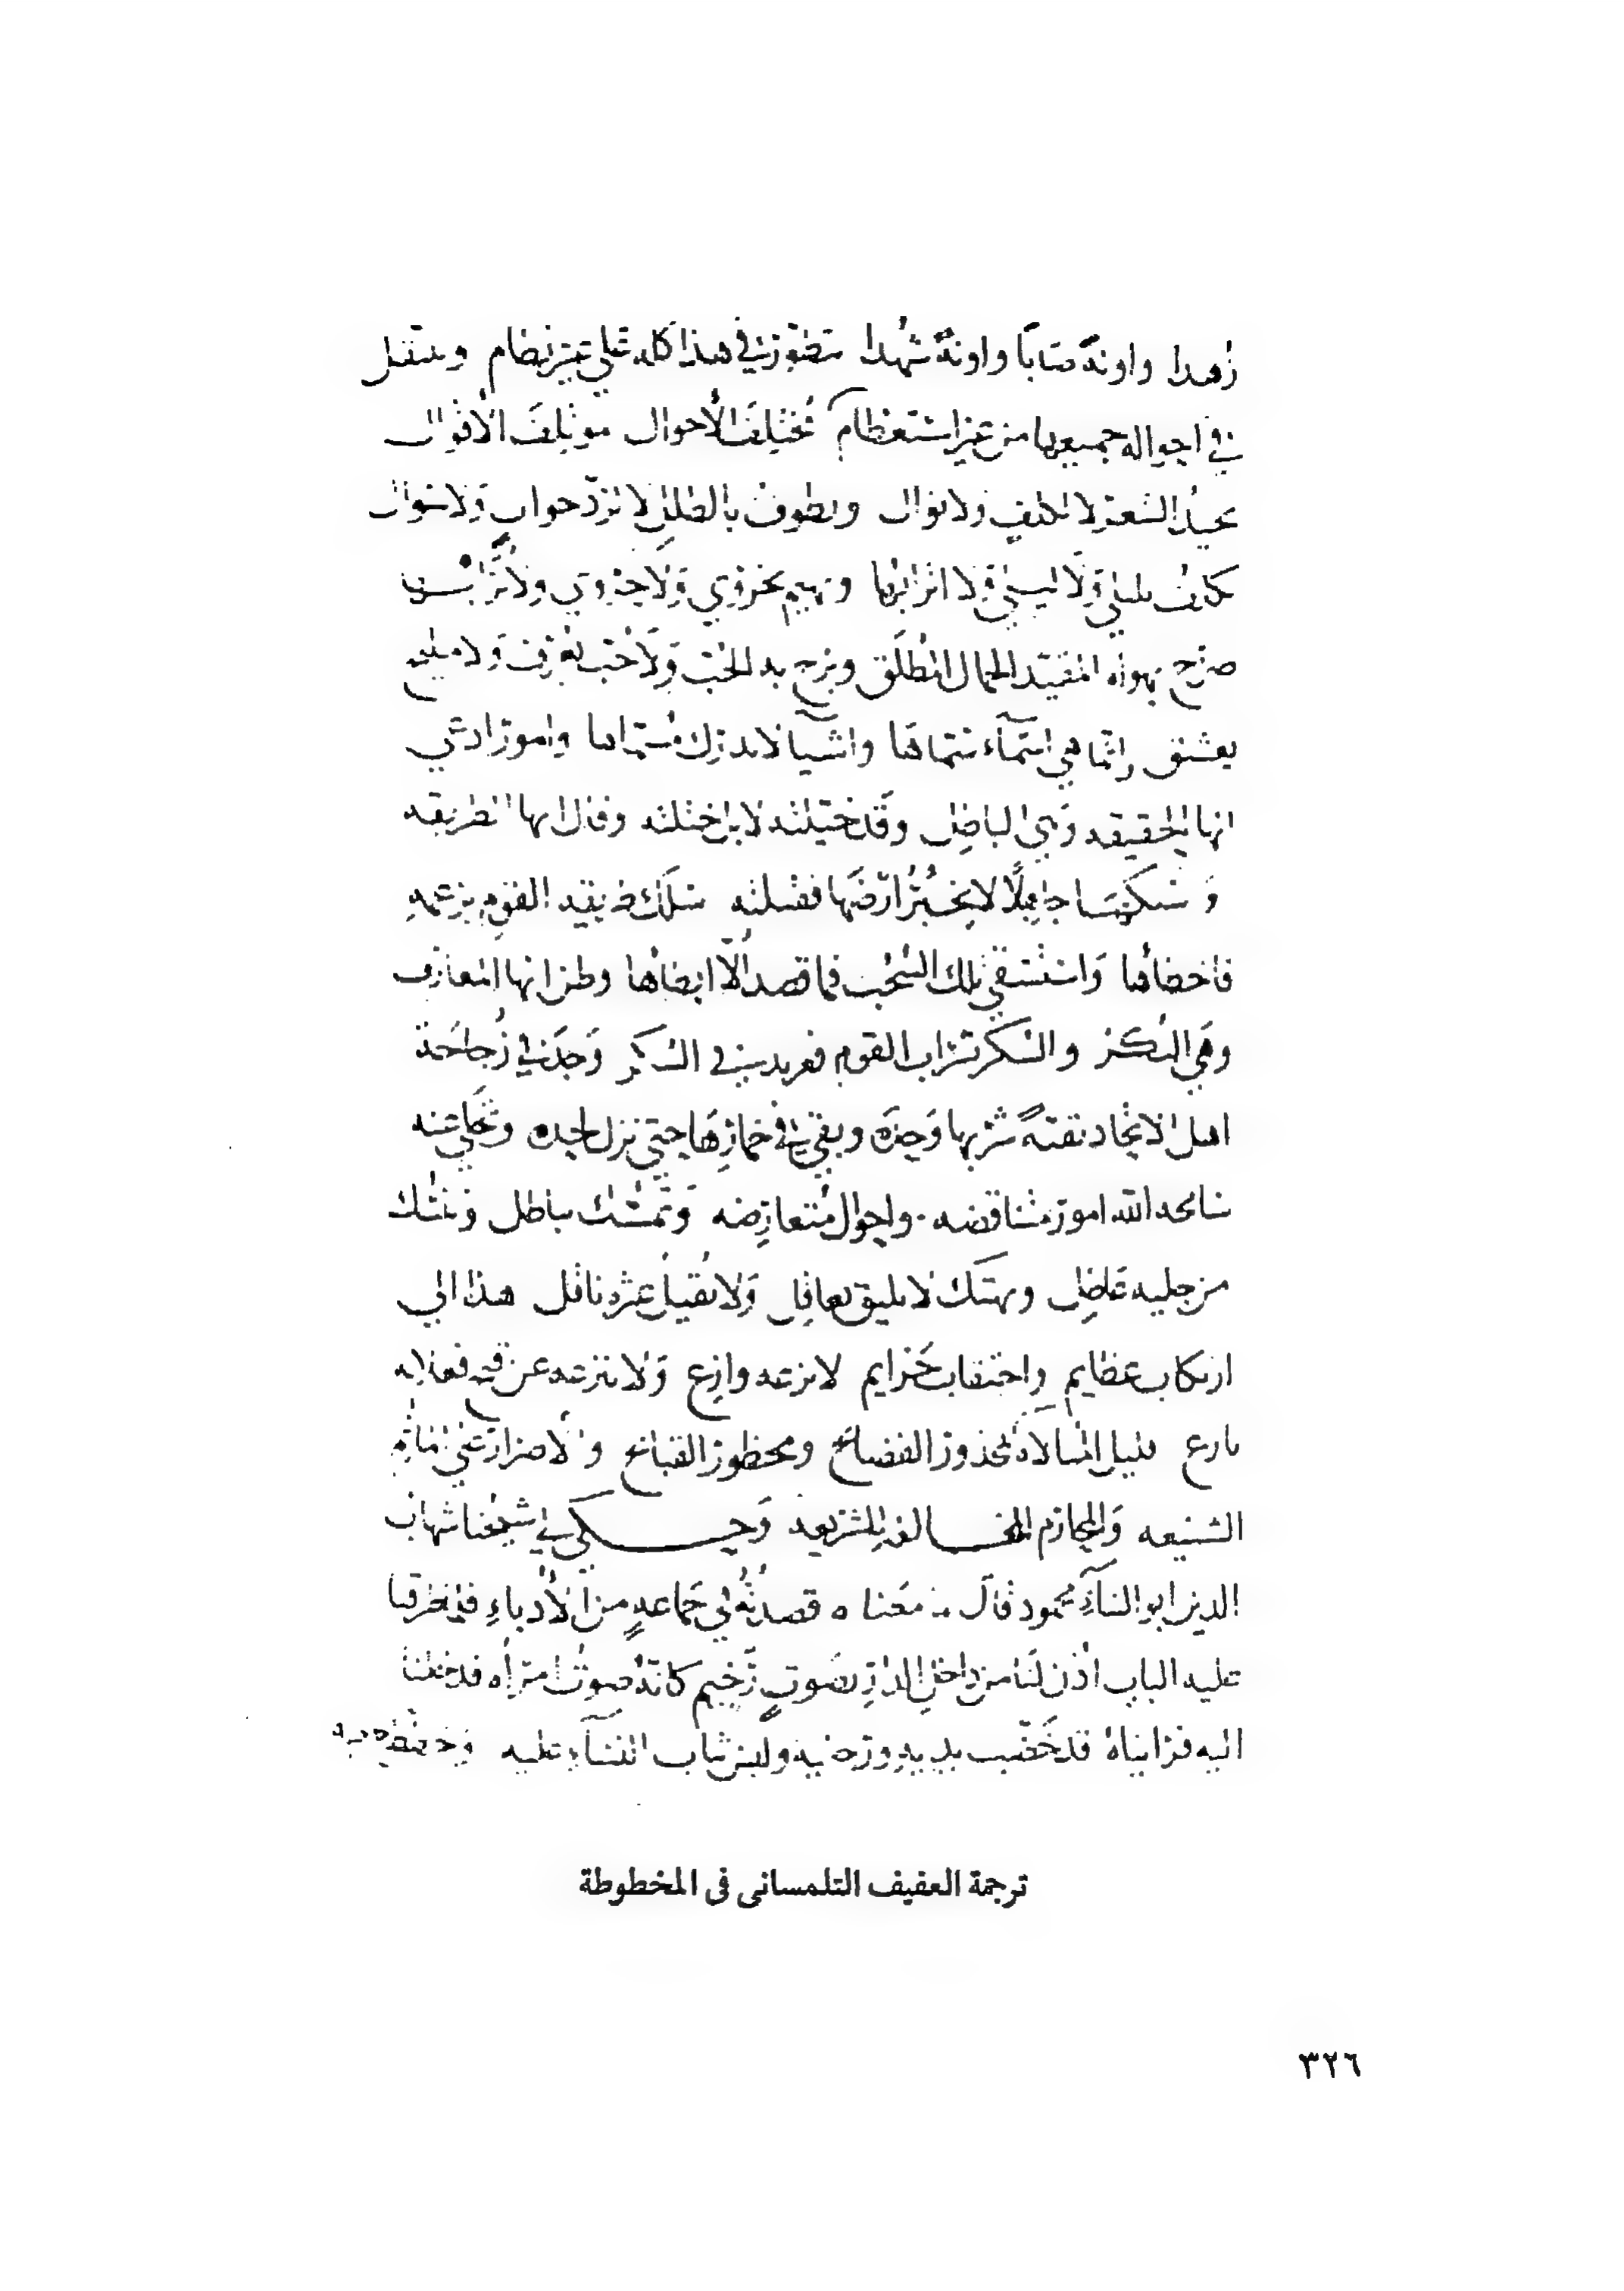 زهدا واونة صابًا واونة شهدا متطور في هذا كله على غير نظام ومنتقل
في احواله جميعها من غير استعظام مختلف الأحوال موتلف الأقوال
يجيد الشعر لا لكيف ولا نوال ويطوف بالطلل لا لرد جواب ولا سوال
كلف بلبنى ولا لبينى ولا اترابها ويهيم بحزوي ولا حزوي ولا
صرح بهواه المقيد الجمال المطلق وبرح به الحب ولا حب يعرف ولا مليح
يعشق وانما هي اسماء سماها واشيا لا يدرك مسماها وامور ادعي
انها الحقيقه وهي الباطل وقد خيلته لا بل ختلته وقال انها الطريقه
و جاهلا لا يخبر ارضها فقتلته سلك طريقه القوم بزعمه
فاخطأها واستسقي تلك السحب فما قصد الا ابطاها وظن انها المعارف
وهي النكر والسكر شراب القوم فعربد في السكر وجد في زجاجة
اهل الاتحاد بقية شربها وحده وبقي في خمارها حتى نزل لحده وحكي عنه
سامحه الله امور متناقضه واحوال متعارضه وتمسك بباطل ونسك
من حليه عاطل وتهتك لا يليق بعاقل ولا يقيل عثره ناقل هذا الي
ارتكاب عظايم واحتقاب جرايم لا يزعه وازع ولا ينزعه عن قبح فعلاته
نازع قليل المبالاة بمحذور الفضائح ومحظور القبائح والاصرار على المآثم
الشنيعه والمحارم المخالفه للشريعه وحكي لي شيخنا شهاب
الدين ابو الثناء محمود قال ما معناه قصدته في جماعه من الأدباء فلما طرقنا
عليه الباب اذن لنا من داخل الدار بصوت رخيم كانه صوت امرأه فدخلنا
اليه فرايناه قد خضب يديه ورجليه ولبس ثياب النساء عليه
ترجمة العفيف التلمسانى فى المخطوطة
٣٢٦